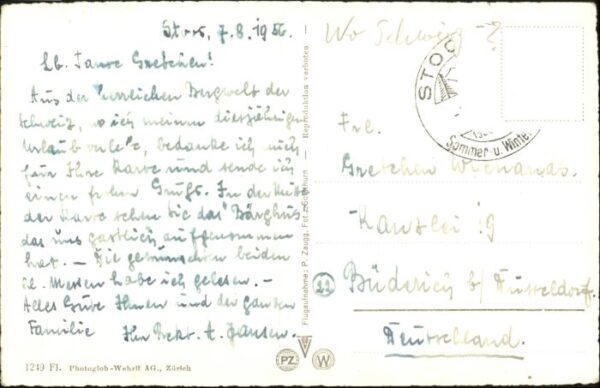 Stoos, 7.8.1956.
Lb. Tante Gretchen!
Aus der herrlichen Bergwelt der
Schweiz, wo ich meinen diesjährigen
Urlaub verlebe, bedanke ich mich
für Ihre Karte und sende ich
einen frohen Gruß. In der Mitte
der Karte sehen Sie das "Bärghus"
das uns gastlich aufgenommen
hat. – Die gewünschten beiden
hl. Messen habe ich gelesen. –
Alles Gute Ihnen und der ganzen
Familie Ihr Rekt. A. Jansen.
1249 Fl. Photoglob-Wehrli AG., Zürich
Flugaufnahme: P. Zaugg, Reproduktion verboten
PZ W
Wo Schweiz?
STOO
Sommer- u. Winter
Frl.
Gretchen
Kanzlei 9
22 Büderich b/ Düsseldorf.
Deutschland.